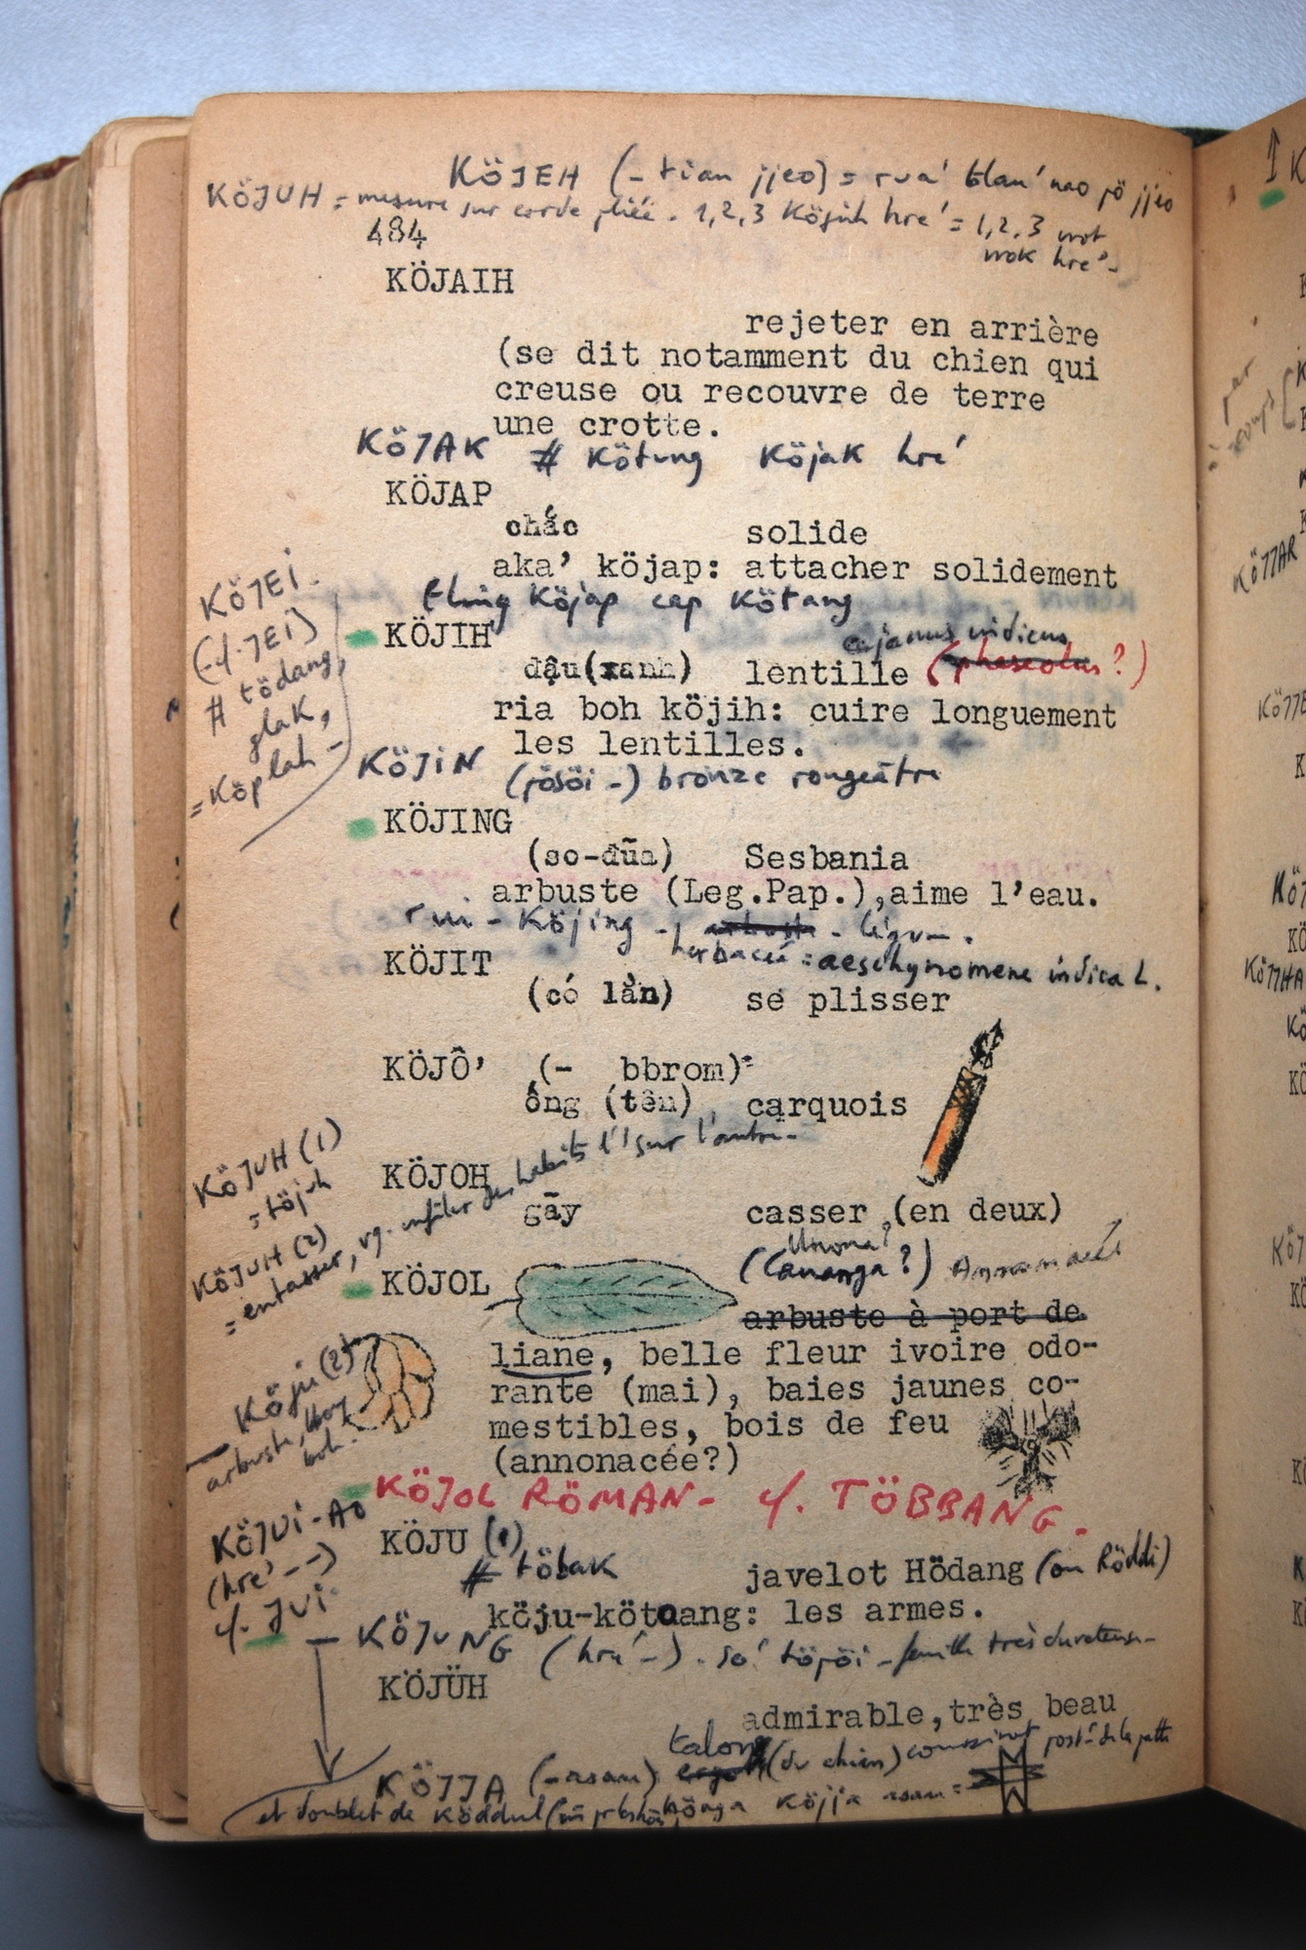 KÖJEH (- tian jjeo) = rua' blau' nao pö jjeo
KÖJUH = mesure sur corde pliée. 1,2,3 Köjuh hre' = 1,2,3 wot
wok hre'-
484
KÖJAIH
rejeter en arrière
(se dit notamment du chien qui
creuse ou recouvre de terre
une crotte.
KÖJAK # Kötung Köjak hre'
KÖJAP
chắc solide
aka' köjap: attacher solidement
Köjap cap Kötang
KÖJEI.
(-4. JEI)
# tödang,
glak,
= Köplah -
KÖJIH cajanus indicus
đậu(xanh) lentille (phaseolus ?)
ria boh köjih: cuire longuement
les lentilles.
KÖJIN (pösöi -) bronze rougeâtre
KÖJING
(so-đũa) Sesbania
arbuste (Leg.Pap.),aime l'eau.
Köjing - arbuste - légum.
herbacée = aeschynomene indica L.
KÖJIT
(có lằn) se plisser
KÖJÔ' (- bbrom)
ống (tên) carquois
KÖJUH (1)
= töjuh
KÖJUH (2)
= entasser, vg. enfiler des habits l'1 sur l'autre-
KÖJOH
gãy casser (en deux)
Unona?
(Cananga ?) Annonacée
KÖJOL
arbuste à port de
liane, belle fleur ivoire odo-
rante (mai), baies jaunes co-
mestibles, bois de feu
(annonacée?)
Köju (2)
arbuste,
boh
KÖJOL RÖMAN - 4. TÖBBANG.
KÖJUI-AO
(hre' --)
4. JUI
KÖJU (1)
# töbak javelot Hödang (ou Röddi)
köju-kötoang: les armes.
KÖJUNG (hre' -). so' töpöi - feuille très duveteuse-
KÖJÜH
admirable,très beau
talon
KÖJJA (-asau) ergot (du chien) coussinet post. de la patte
et doublet de Köddul Köjja asau =